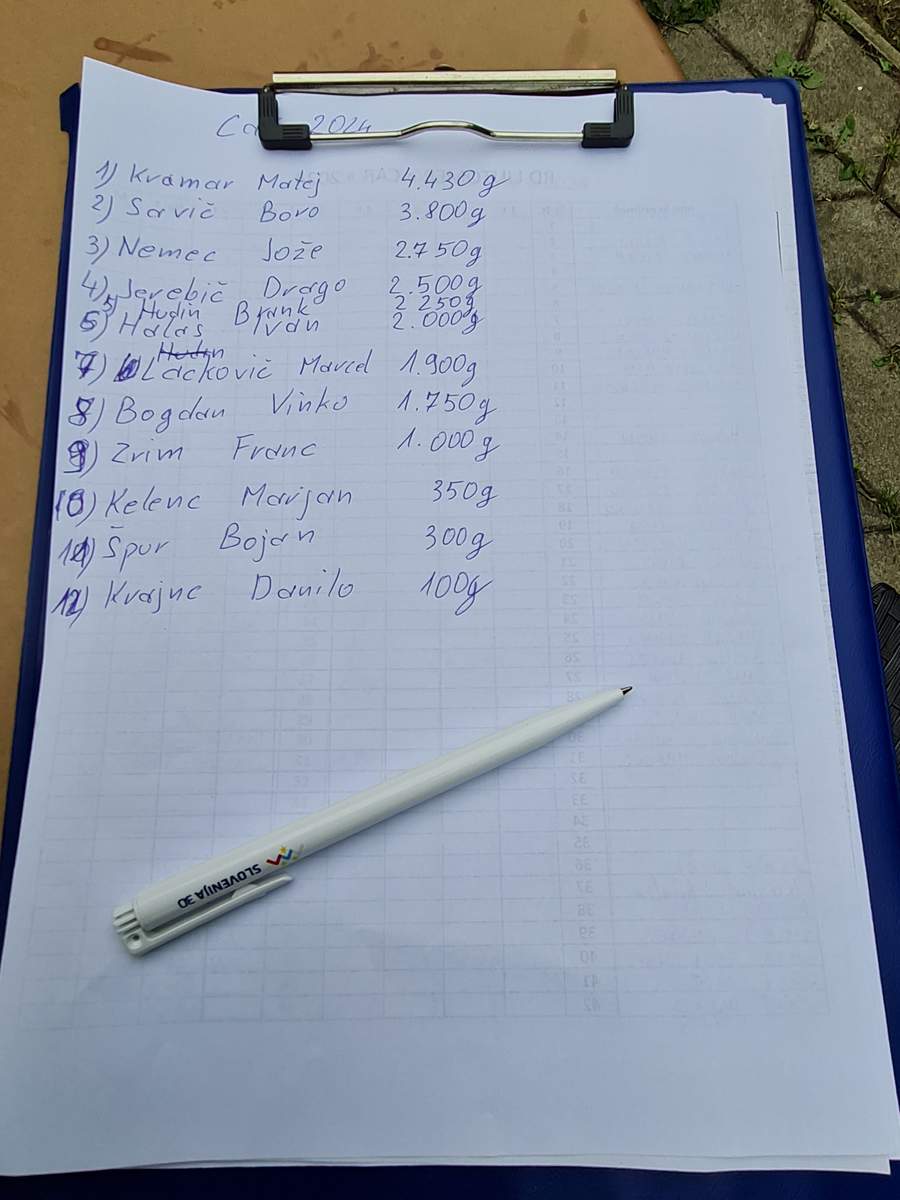 Ca 2024
1) Kramar Matej 4.430g
2) Savič Boro 3.800g
3) Nemec Jože 2.750g
4) Jerebič Drago 2.500g
5) Hudin Brank 2 250g
6) Halas Ivan 2.000g
Hudin
7) Lackovič Marcel 1.900g
8) Bogdan Vinko 1.750g
9) Zrim Franc 1.000g
10) Kelenc Marijan 350g
11) Špur Bojan 300g
12) Krajnc Danilo 100g
SLOVENIJA 30